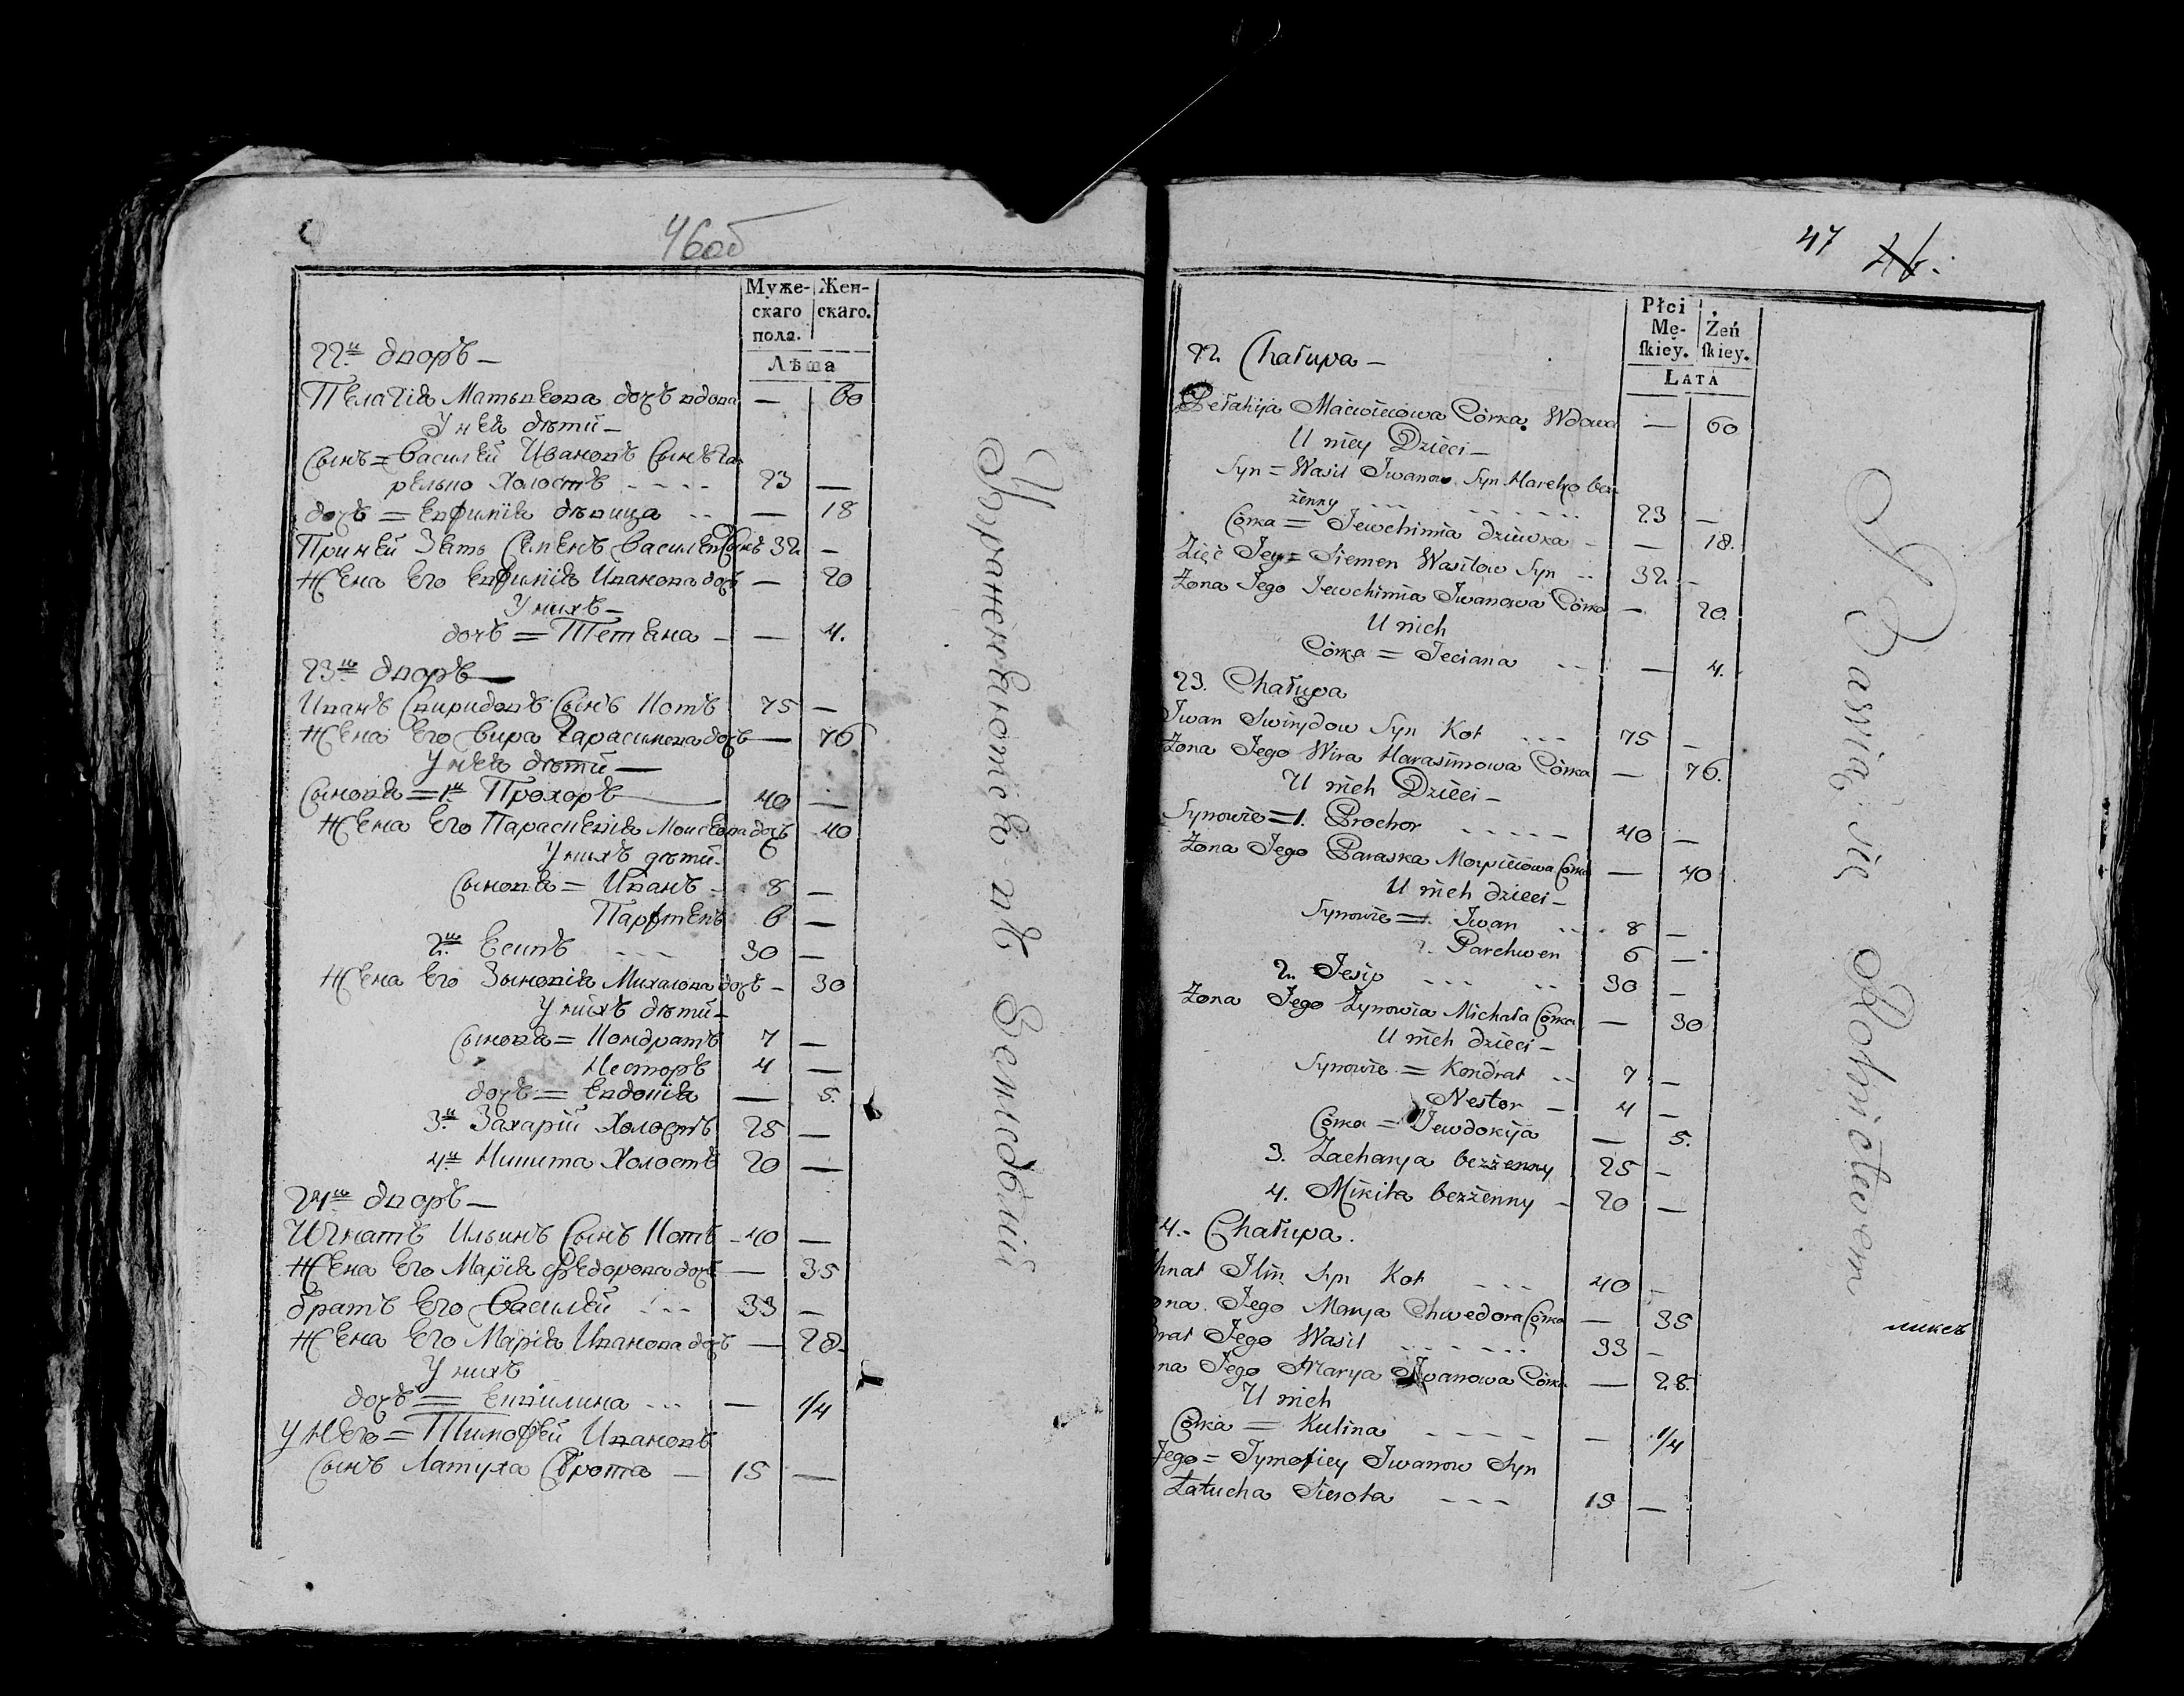 46об
Муже- Жен-
скаго скаго.
пола.
Лѣта
22й дворъ —
Пелагія Матвѣева дочъ вдова — 60
У ней дѣти —
Сынъ = Василей Ивановъ Сынъ Га-
релко Холостъ 23 —
дочъ = Евфимія дѣвица — 18
При ней Зять Семенъ Васильевъ Сынъ 32 —
Жена Его Евфимія Иванова дочъ — 20
У нихъ —
дочъ = Тетяна — 4.
23й дворъ —
Иванъ Свиридовъ Сынъ Котъ 75 —
Жена Его Вира Гарасимова дочъ — 76
У ней дѣти —
Сыновя = 1й Прохоръ 40 —
Жена Его Парасковія Моисеева дочъ 40
У нихъ дѣти —
Сыновя = Иванъ 8 —
Парфтенъ 6 —
2й Есипъ 30 —
Жена Его Зыновія Михалова дочъ — 30
У нихъ дѣти —
Сыновя = Кондратъ 7 —
Несторъ 4 —
дочъ = Евдокія — 5.
3й Захарій Холостъ 25 —
4й Никита Холостъ 20 —
24й дворъ —
Игнатъ Ильинъ Сынъ Котъ 40 —
Жена Его Марія Федорова дочъ — 35
братъ Его Василей 33 —
Жена Его Марія Иванова дочъ — 28
У нихъ
дочъ = Акилина — 1/4
У него = Тимофей Ивановъ
Сынъ Латуха Сирота — 15 —
Упражняются въ Земледѣлій
47
Płci Żeń
Mę- skiey.
skiey.
LATA
22 Chałupa —
Pełahija Maćwieiowa Córka Wdowa — 60
U niey Dzieci —
Syn = Wasil Iwanow Syn Harełko bez
żenny 23 —
Córka = Jewchimia dziewka — 18.
Zięć Jey = Siemen Wasilow Syn 32 —
Żona Jego Jewchimia Iwanowa Córka — 20.
U nich
Córka = Teciana — 4.
23. Chałupa
Iwan Swirydow Syn Kot 75 —
Żona Jego Wira Harasimowa Córka — 76.
U nich Dzieci —
Synowie = 1. Prochor 40 —
Żona Jego Paraska Moysieiowa Córka — 40
U nich dzieci —
Synowie = 1. Iwan 8 —
2. Parchwen 6 —
2. Jesip 30 —
Żona Jego Zynowia Michała Córka — 30
U nich dzieci —
Synowie = Kondrat 7 —
Nestor 4 —
Córka = Jewdokija — 5.
3. Zacharya bezżenny 25 —
4. Mikita bezżenny 20 —
4. Chałupa.
hnat Ilin Syn Kot 40 —
ona Jego Marya Chwedora Córka — 35
rat Jego Wasil 33 —
na Jego Marya Iwanowa Córka — 28.
U nich
Córka = Kulina — 1/4
Jego = Tymofiey Iwanow Syn
Łatucha Sierota 15 —
Bawią się Rolnictwem